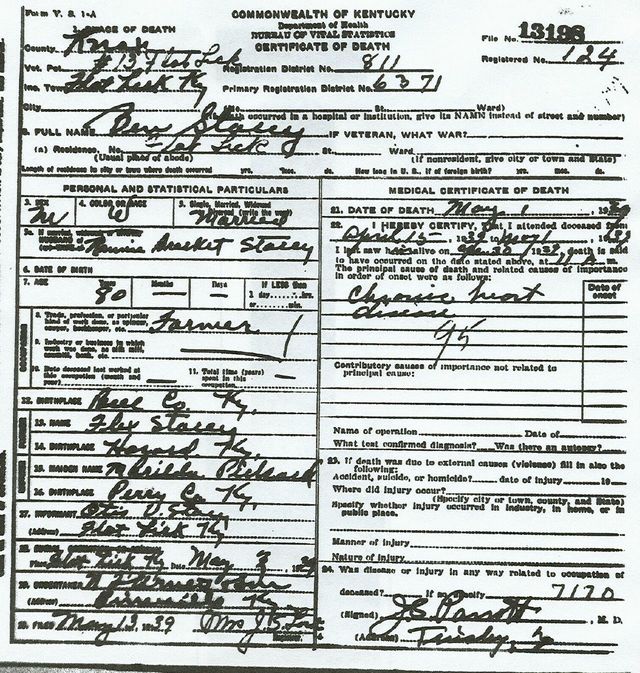 Form V. S. 1-A
COMMONWEALTH OF KENTUCKY
Department of Health
BUREAU OF VITAL STATISTICS
CERTIFICATE OF DEATH
File No. 13198
Registered No. 124
PLACE OF DEATH
County Knox
Vot. Pct. #13 Flat Lick
Registration District No. 811
Inc. Town Flat Lick Ky
Primary Registration District No. 6371
City No. St. Ward)
death occurred in a hospital or institution, give its NAME instead of street and number)
2. FULL NAME Ben Stacey IF VETERAN, WHAT WAR?
(a) Residence. No. Flat Lick St. Ward
(Usual place of abode) (If nonresident, give city or town and State)
Length of residence in city or town where death occurred yrs. mos. ds. How long in U. S., if of foreign birth? yrs. mos. ds.
PERSONAL AND STATISTICAL PARTICULARS
3. SEX M
4. COLOR OR RACE W
5. Single, Married, Widowed
(write the word) Married
5a. If married, widowed or
HUSBAND of Stacey
6. DATE OF BIRTH
7. AGE 80 Months Days If LESS than
1 day hrs.
or min.
8. Trade, profession, or particular
kind of work done, as spinner,
sawyer, bookkeeper, etc. Farmer
9. Industry or business in which
work was done, as silk mill,
sawmill, bank, etc.
10. Date deceased last worked at
this occupation (month and
year)
11. Total time (years)
spent in this
occupation
12. BIRTHPLACE Bell Co Ky.
13. NAME Stacey
14. BIRTHPLACE Hazard Ky.
15. MAIDEN NAME
16. BIRTHPLACE Perry Co Ky.
17. INFORMANT Otis V. Stacey
(Address) Flat Lick Ky
Place Flat Lick Ky Date May 3 1939
19. UNDERTAKER
(Address) Ky
20. FILED May 13 1939 Mrs J. B.
Registrar.
MEDICAL CERTIFICATE OF DEATH
21. DATE OF DEATH May 1 1939
22. I HEREBY CERTIFY, that I attended deceased from
April 15 1939 to May 1 1939
I last saw h alive on Apr 30 1939, death is said
to have occurred on the date stated above, at m.
The principal cause of death and related causes of importance
in order of onset were as follows:
Date of
onset
Chronic heart
disease
95
Contributory causes of importance not related to
principal cause:
Name of operation Date of
What test confirmed diagnosis? Was there an autopsy?
23. If death was due to external causes (violence) fill in also the
following:
Accident, suicide, or homicide? date of injury 19
Where did injury occur?
(Specify city or town, county, and State)
Specify whether injury occurred in industry, in home, or in
public place.
Manner of injury
Nature of injury
24. Was disease or injury in any way related to occupation of
deceased? If so specify 7170
(Signed) J. G. Parrott M. D.
(Address) Tinsley, Ky